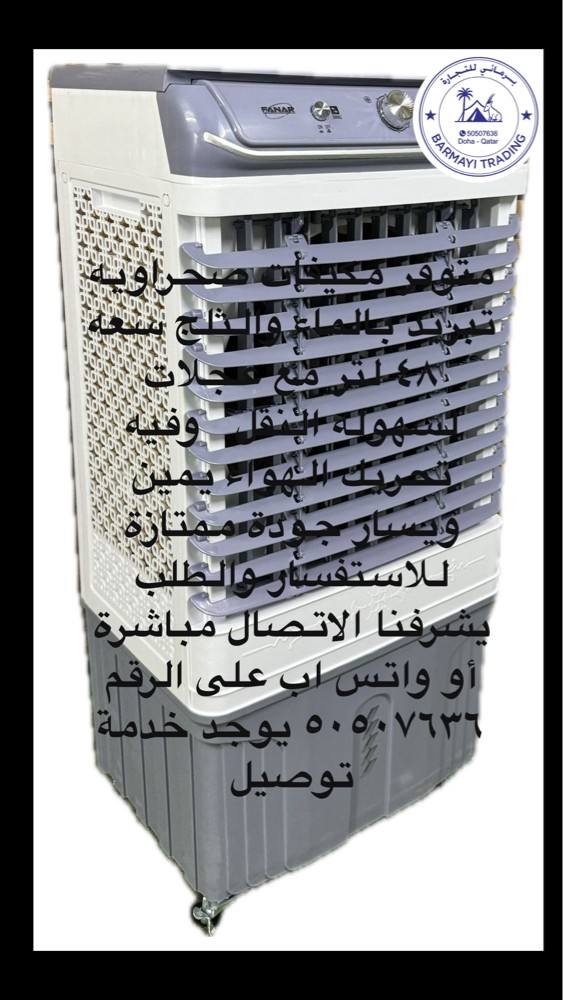 FANAR
برماني للتجارة
50507636
Doha - Qatar
BARMAYI TRADING
متوفر مكيفات صحراويه
تبريد بالماء والثلج سعه
٤٨ لتر مع عجلات
لسهوله النقل وفيه
تحريك الهواء يمين
ويسار جودة ممتازة
للاستفسار والطلب
يشرفنا الاتصال مباشرة
أو واتس اب على الرقم
٥٠٥٠٧٦٣٦ يوجد خدمة
توصيل